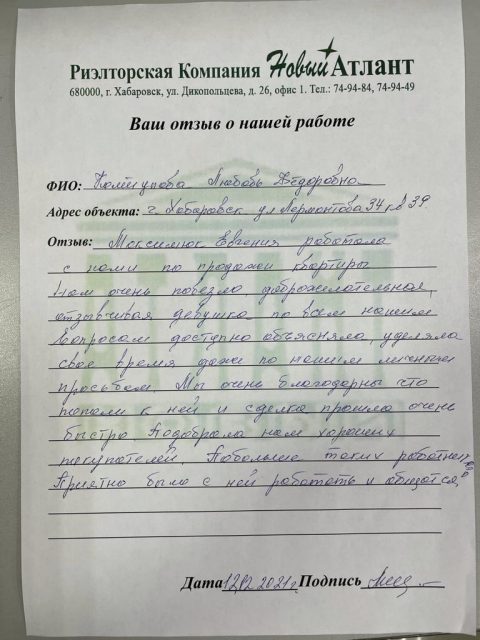 Риэлторская Компания Новый Атлант
680000, г. Хабаровск, ул. Дикопольцева, д. 26, офис 1. Тел.: 74-94-84, 74-94-49
Ваш отзыв о нашей работе
ФИО: Любовь Фёдоровна
Адрес объекта: г. Хабаровск ул Лермонтова 34 кв 39
Отзыв: Мексимюк Евгения работала
с нами по продажи квартиры
Нам очень повезло, доброжелательная,
отзывчивая девушка по всем нашим
вопросам доступно объясняла, уделяла
свое время даже по нашим личным
просьбам. Мы очень благодарны что
попали к ней и сделка прошла очень
быстро. Подобрала нам хороших
покупателей. Побольше таких работников
Приятно было с ней работать и общатся.
Дата 12.02.2021г. Подпись